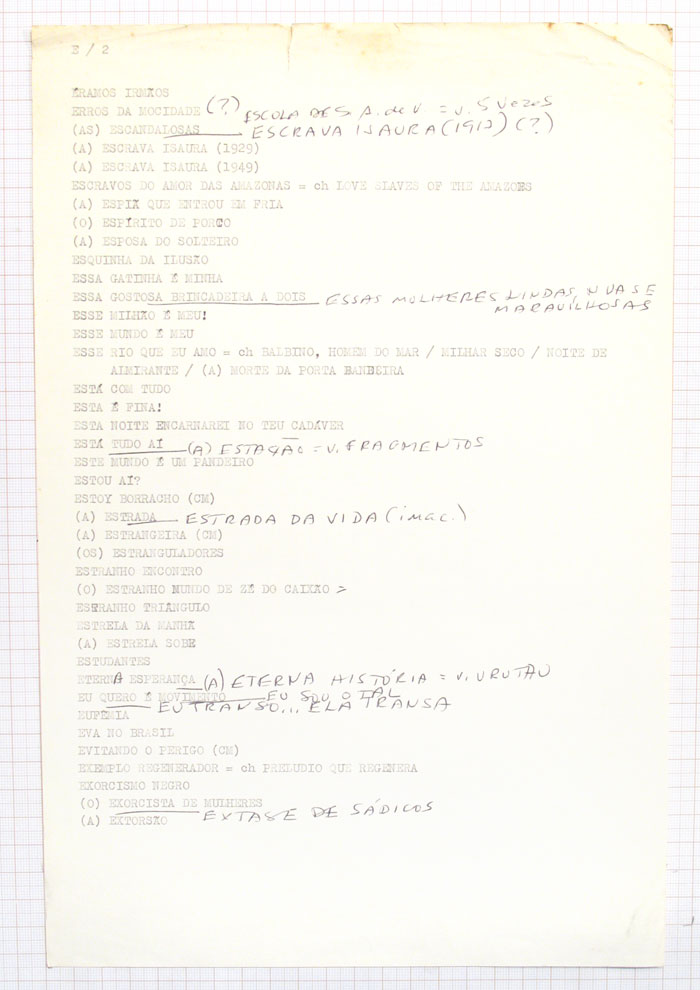 E / 2
ÉRAMOS IRMÃOS
ERROS DA MOCIDADE (?) ESCOLA DE S. A. de V. = v. 5 vezes
(AS) ESCANDALOSAS ESCRAVA ISAURA (191?) (?)
(A) ESCRAVA ISAURA (1929)
(A) ESCRAVA ISAURA (1949)
ESCRAVOS DO AMOR DAS AMAZONAS = ch LOVE SLAVES OF THE AMAZONS
(A) ESPIÃ QUE ENTROU EM FRIA
(O) ESPÍRITO DE PORCO
(A) ESPOSA DO SOLTEIRO
ESQUINHA DA ILUSÃO
ESSA GATINHA É MINHA
ESSA GOSTOSA BRINCADEIRA A DOIS ESSAS MULHERES LINDAS, NUAS E
MARAVILHOSAS
ESSE MILHÃO É MEU!
ESSE MUNDO É MEU
ESSE RIO QUE EU AMO = ch BALBINO, HOMEM DO MAR / MILHAR SECO / NOITE DE
ALMIRANTE / (A) MORTE DA PORTA BANDEIRA
ESTÁ COM TUDO
ESTA É FINA!
ESTA NOITE ENCARNAREI NO TEU CADÁVER
ESTÁ TUDO AÍ (A) ESTAÇÃO = v. FRAGMENTOS
ESTE MUNDO É UM PANDEIRO
ESTOU AÍ?
ESTOY BORRACHO (CM)
(A) ESTRADA ESTRADA DA VIDA (inac.)
(A) ESTRANGEIRA (CM)
(OS) ESTRANGULADORES
ESTRANHO ENCONTRO
(O) ESTRANHO MUNDO DE ZÉ DO CAIXÃO >
ESTRANHO TRIÂNGULO
ESTRELA DA MANHÃ
(A) ESTRELA SOBE
ESTUDANTES
ETERNA ESPERANÇA (A) ETERNA HISTÓRIA = v. URUTAU
EU QUERO É MOVIMENTO EU SOU O TAL
EU TRANSO... ELA TRANSA
EUFÊMIA
EVA NO BRASIL
EVITANDO O PERIGO (CM)
EXEMPLO REGENERADOR = ch PRELUDIO QUE REGENERA
EXORCISMO NEGRO
(O) EXORCISTA DE MULHERES
(A) EXTORSÃO EXTASE DE SÁDICOS